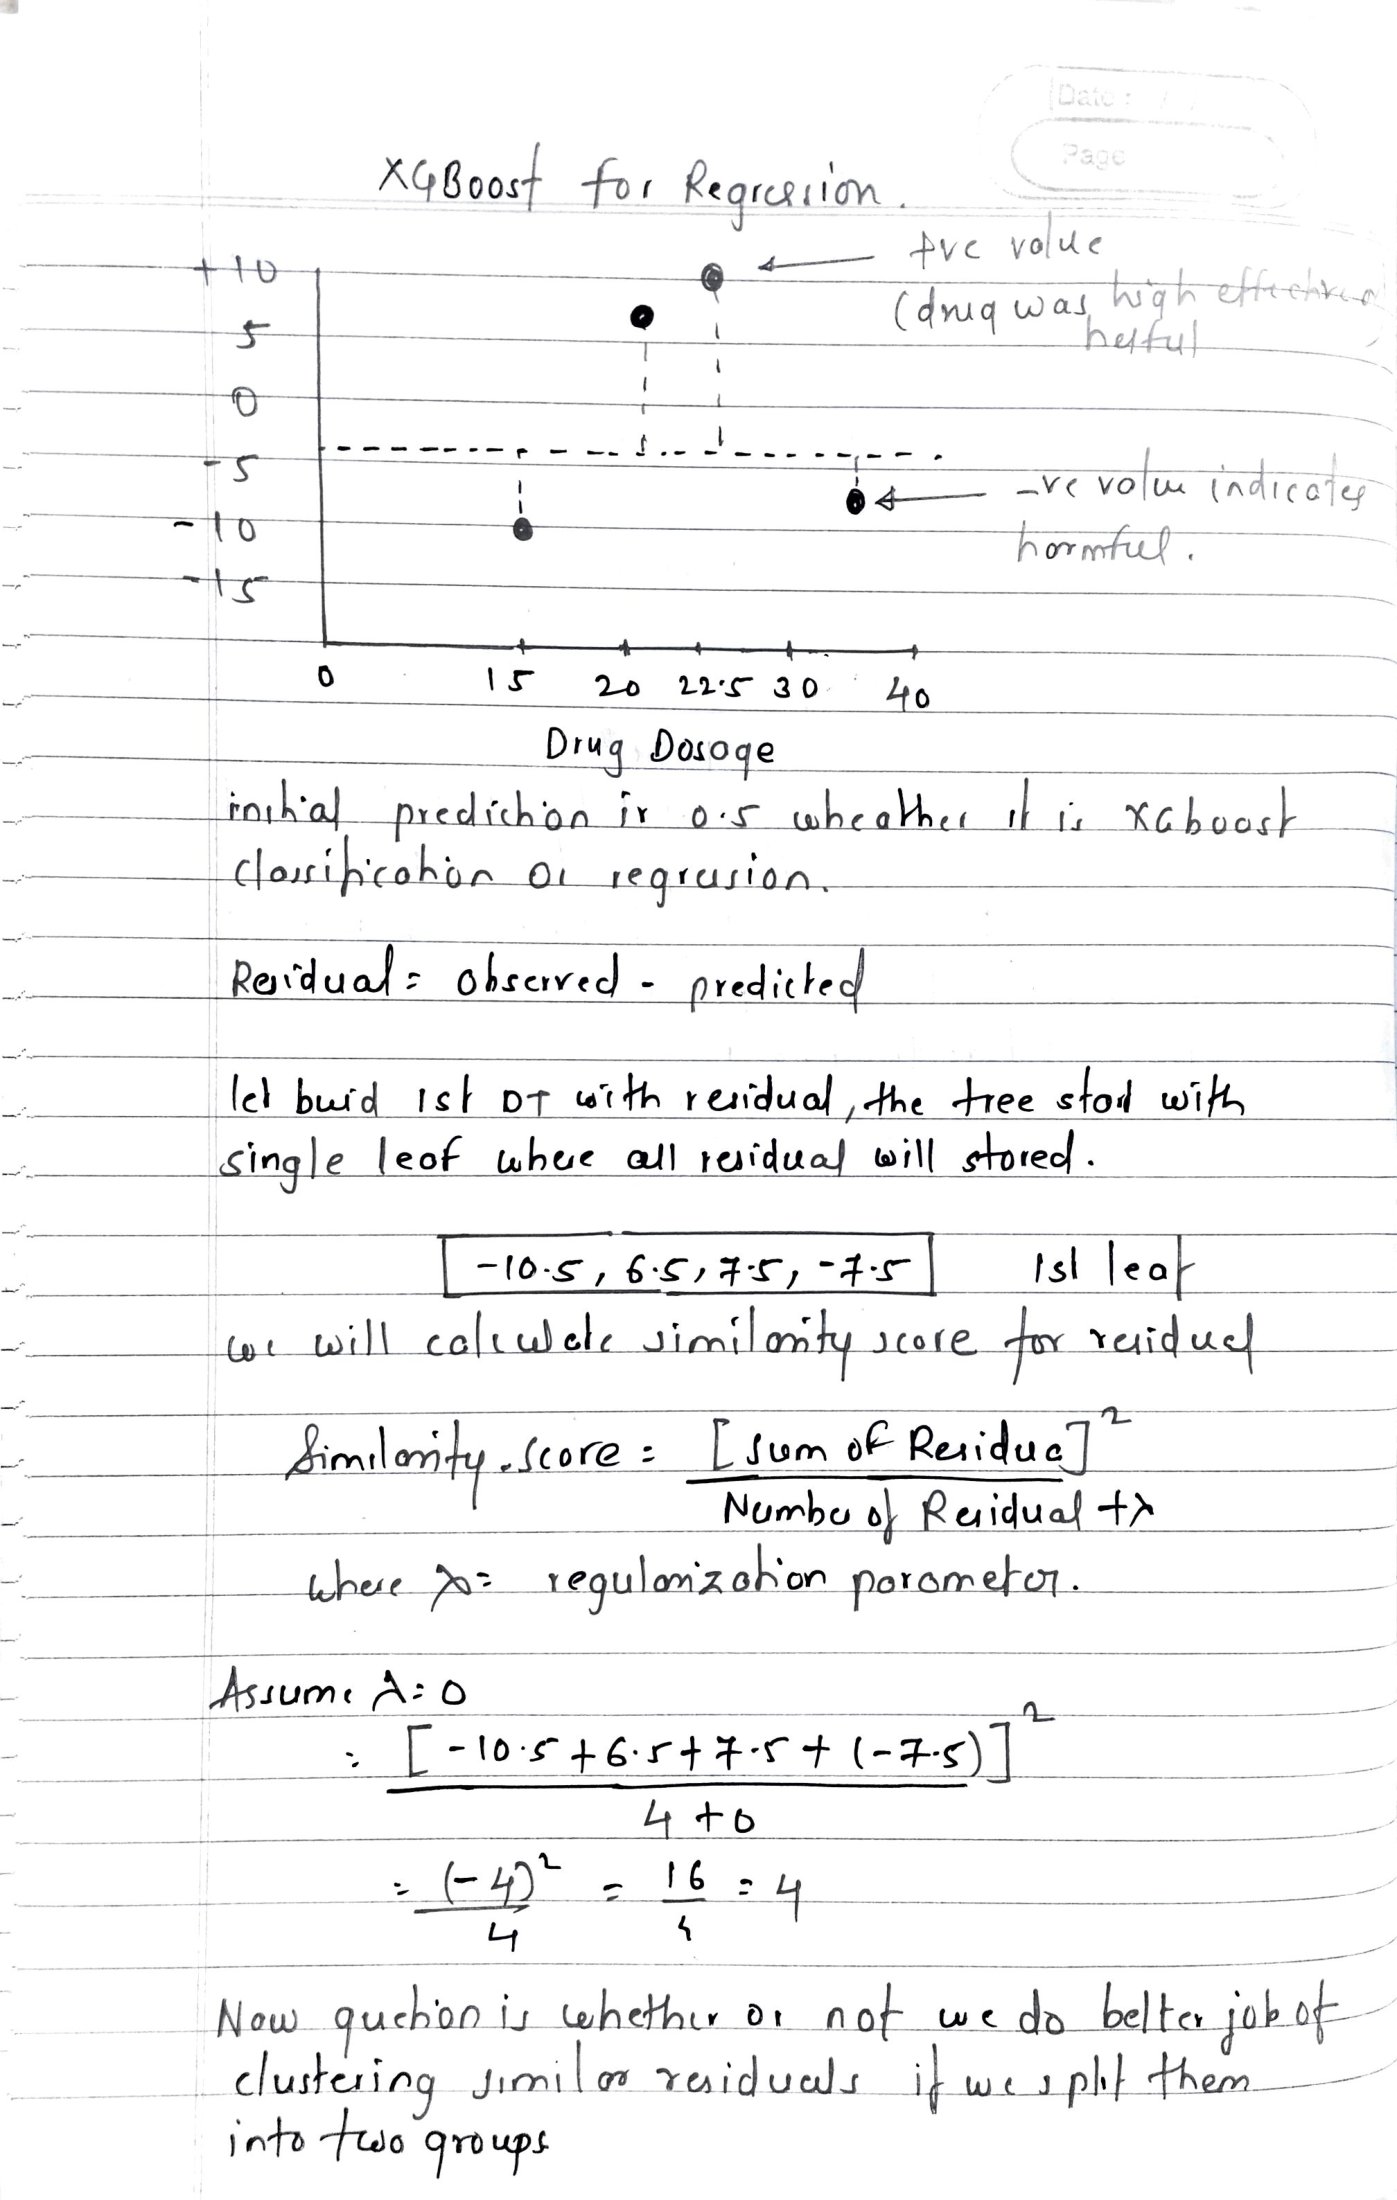 Date : / /
Page
XGBoost for Regression.
+10
+ve value
(drug was high effective
helful
5
0
-5
-ve value indicates
harmful.
-10
-15
0 15 20 22.5 30 40
Drug Dosage
initial prediction is 0.5 wheather it is XGboost
classification or regression.
Residual = observed - predicted
let buid 1st DT with residual, the tree start with
single leaf where all residual will stored.
-10.5, 6.5, 7.5, -7.5 1st leaf
we will calculate similarity score for residual
Similarity score = [sum of Residual]²
Number of Residual + λ
where λ = regularization parameter.
Assume λ = 0
= [-10.5 + 6.5 + 7.5 + (-7.5)]²
4 + 0
= (-4)² = 16 = 4
4 4
Now quetion is whether or not we do better job of
clustering similar residuals if we split them
into two groups